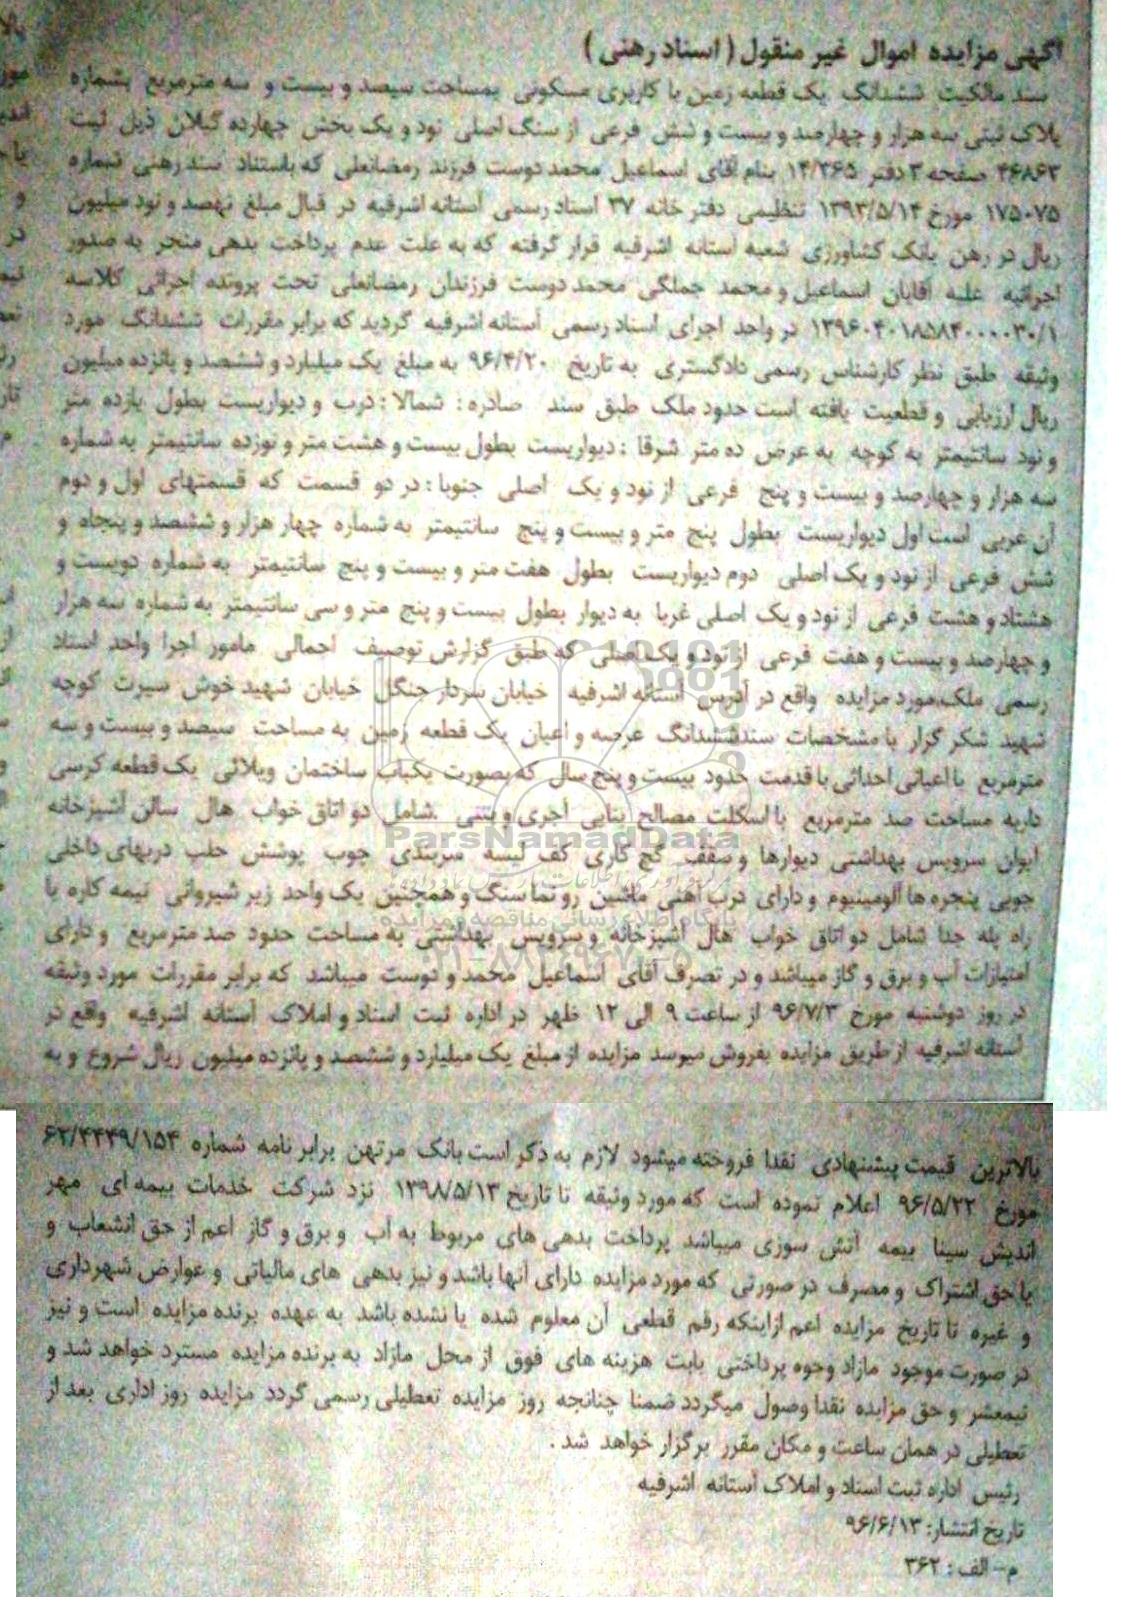 آگهی مزایده اموال غیر منقول ( اسناد رهنی )
سند مالکیت ششدانگ یک قطعه زمین با کاربری مسکونی بمساحت سیصد و بیست و سه مترمربع بشماره
پلاک ثبتی سه هزار و چهارصد و بیست و شش فرعی از سنگ اصلی نود و یک بخش چهارده گیلان ذیل ثبت
۴۶۸۶۲ صفحه ۳ دفتر ۱۴/۳۶۵ بنام آقای اسماعیل محمد دوست فرزند رمضانعلی که باستناد سند رهنی شماره
۱۷۵۰۷۵ مورخ ۱۳۹۳/۵/۱۴ تنظیمی دفتر خانه ۳۷ اسناد رسمی آستانه اشرفیه در قبال مبلغ نهصد و نود میلیون
ریال در رهن بانک کشاورزی شعبه آستانه اشرفیه قرار گرفته که به علت عدم پرداخت بدهی منجر به صدور
اجرائیه علیه آقایان اسماعیل و محمد جملگی محمد دوست فرزندان رمضانعلی تحت پرونده اجرائی کلاسه
۱۳۹۶۰۴۰۱۸۵۸۴۰۰۰۰۳۰/۱ در واحد اجرای اسناد رسمی آستانه اشرفیه گردید که برابر مقررات ششدانگ مورد
وثیقه طبق نظر کارشناس رسمی دادگستری به تاریخ ۹۶/۴/۲۰ به مبلغ یک میلیارد و ششصد و پانزده میلیون
ریال ارزیابی و قطعیت یافته است حدود ملک طبق سند صادره : شمالا : درب و دیواریست بطول یازده متر
و نود سانتیمتر به کوچه به عرض ده متر شرقا : دیواریست بطول بیست و هشت متر و نوزده سانتیمتر به شماره
سه هزار و چهارصد و بیست و پنج فرعی از نود و یک اصلی جنوبا : در دو قسمت که قسمتهای اول و دوم
آن غربی است اول دیواریست بطول پنج متر و بیست و پنج سانتیمتر به شماره چهار هزار و ششصد و پنجاه و
شش فرعی از نود و یک اصلی دوم دیواریست بطول هفت متر و بیست و پنج سانتیمتر به شماره دویست و
هشتاد و هشت فرعی از نود و یک اصلی غربا به دیوار بطول بیست و پنج متر و سی سانتیمتر به شماره سه هزار
و چهارصد و بیست و هفت فرعی از نود و یک اصلی که طبق گزارش توصیف اجمالی مامور اجرا واحد اسناد
رسمی ملک مورد مزایده واقع در آدرس آستانه اشرفیه خیابان سردار جنگل خیابان شهید خوش سیرت کوچه
شهید شکر گزار با مشخصات سند ششدانگ عرصه و اعیان یک قطعه زمین به مساحت سیصد و بیست و سه
مترمربع با اعیانی احداثی با قدمت حدود بیست و پنج سال که بصورت یکباب ساختمان ویلائی یک قطعه کرسی
داربه مساحت صد مترمربع با اسکلت مصالح بنایی آجری و بتنی شامل دو اتاق خواب هال سالن آشپزخانه
ParsNamadData
ایوان سرویس بهداشتی دیوارها و سقف گچ کاری کف لیسه سربندی چوب پوشش حلب دربهای داخلی
چوبی پنجره ها آلومینیوم و دارای درب آهنی ماشین رو نما سنگ و همچنین یک واحد زیر شیروانی نیمه کاره با
پایگاه اطلاع رسانی مناقصه و مزایده
راه پله جدا شامل دو اتاق خواب هال آشپزخانه و سرویس بهداشتی به مساحت حدود صد مترمربع و دارای
۰۲۱-۸۸۳۴۹۶۷۰-۵
امتیازات آب و برق و گاز میباشد و در تصرف آقای اسماعیل محمد و دوست میباشد که برابر مقررات مورد وثیقه
در روز دوشنبه مورخ ۹۶/۷/۳ از ساعت ۹ الی ۱۲ ظهر در اداره ثبت اسناد و املاک آستانه اشرفیه واقع در
آستانه اشرفیه از طریق مزایده بفروش میرسد مزایده از مبلغ یک میلیارد و ششصد و پانزده میلیون ریال شروع و به
بالاترین قیمت پیشنهادی نقدا فروخته میشود لازم به ذکر است بانک مرتهن برابر نامه شماره ۶۲/۴۴۴۹/۱۵۴
مورخ ۹۶/۵/۲۲ اعلام نموده است که مورد وثیقه تا تاریخ ۱۳۹۸/۵/۱۳ نزد شرکت خدمات بیمه ای مهر
اندیش سینا بیمه آتش سوزی میباشد پرداخت بدهی های مربوط به آب و برق و گاز اعم از حق انشعاب و
یا حق اشتراک و مصرف در صورتی که مورد مزایده دارای آنها باشد و نیز بدهی های مالیاتی و عوارض شهرداری
و غیره تا تاریخ مزایده اعم ازاینکه رقم قطعی آن معلوم شده یا نشده باشد به عهده برنده مزایده است و نیز
در صورت موجود مازاد وجوه پرداختی بابت هزینه های فوق از محل مازاد به برنده مزایده مسترد خواهد شد و
نیمعشر و حق مزایده نقدا وصول میگردد ضمنا چنانچه روز مزایده تعطیلی رسمی گردد مزایده روز اداری بعد از
تعطیلی در همان ساعت و مکان مقرر برگزار خواهد شد .
رئیس اداره ثبت اسناد و املاک آستانه اشرفیه
تاریخ انتشار: ۹۶/۶/۱۳
م- الف : ۳۶۲